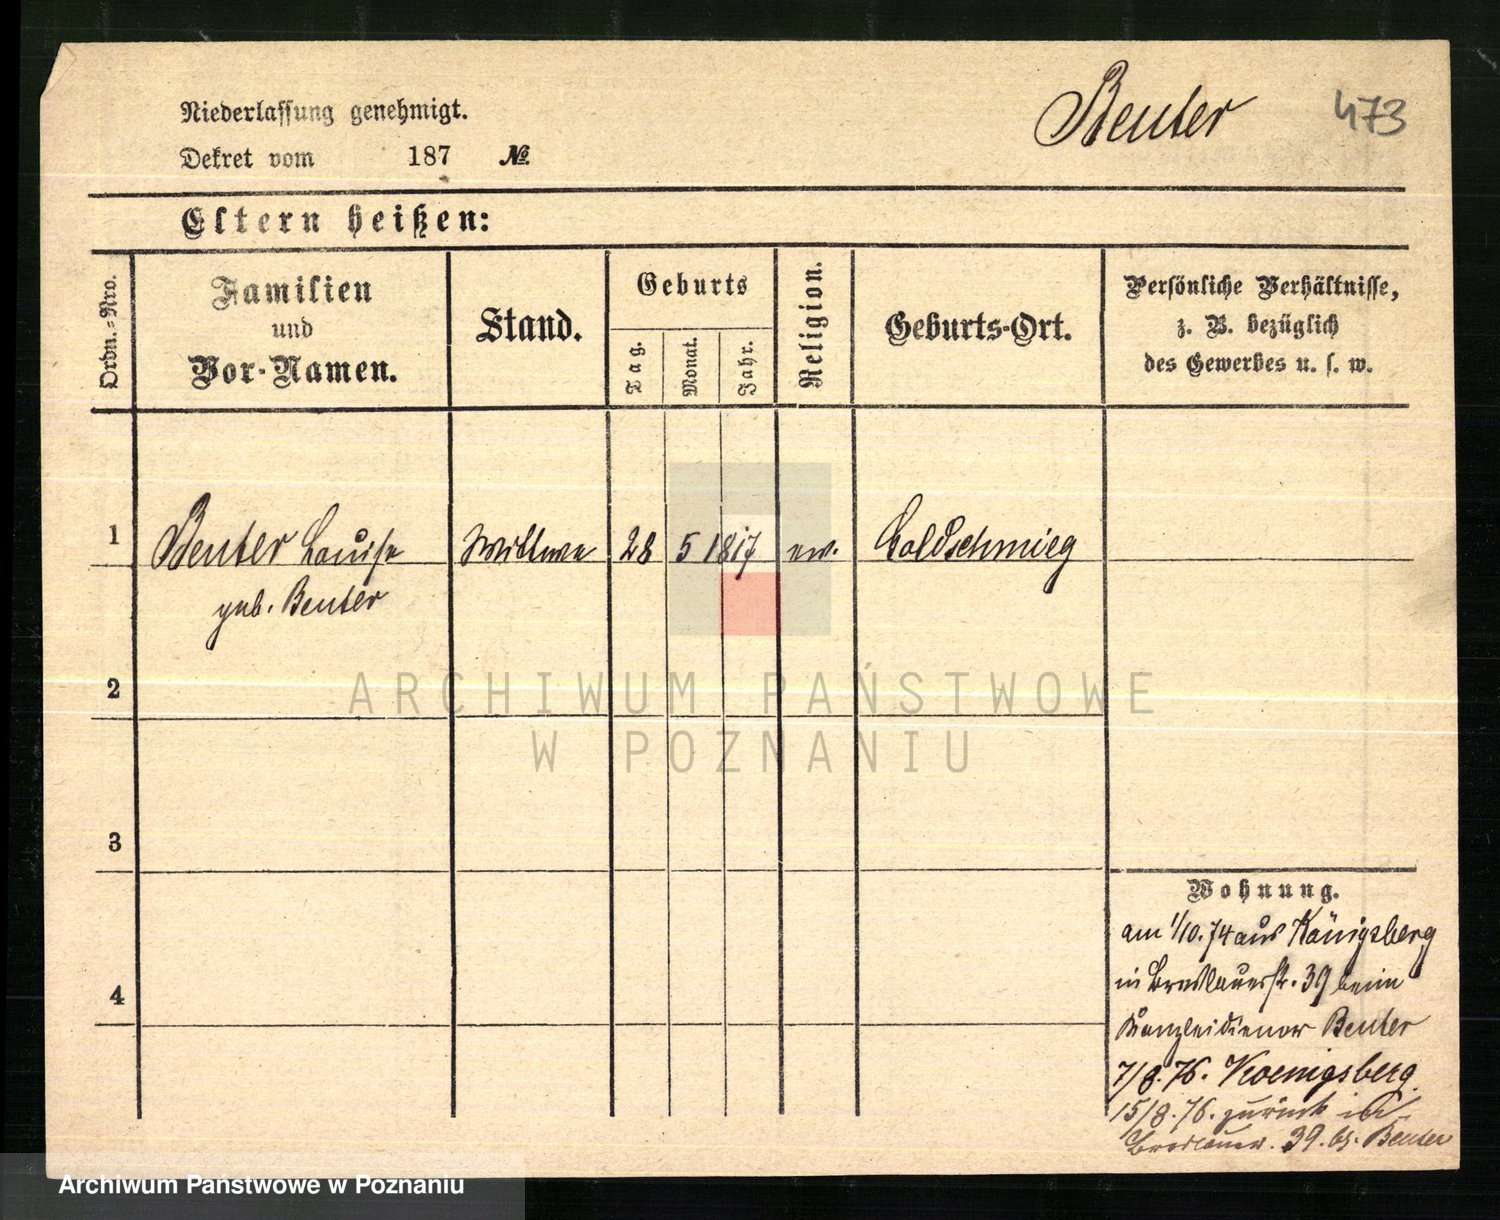 Niederlassung genehmigt.
Dekret vom 187 №
Beuter
473
Eltern heißen:
Ordn.-Nro.
Familien
und
Vor-Namen.
Stand.
Geburts
Tag.
Monat.
Jahr.
Religion.
Geburts-Ort.
Persönliche Verhältnisse,
z. B. bezüglich
des Gewerbes u. s. w.
1 Beuter Louise Wittwe 28 5 1817 ev. Goldschmieg
geb. Beuter
2
3
4
Wohnung.
am 1/10. 74 aus Königsberg
in Breslauerstr. 39 beim
Kanzleidiener Beuter
7/8. 76. Koenigsberg.
15/8. 76. zurück
Breslauer. 39. b. Beuter
ARCHIWUM PAŃSTWOWE
W POZNANIU
Archiwum Państwowe w Poznaniu